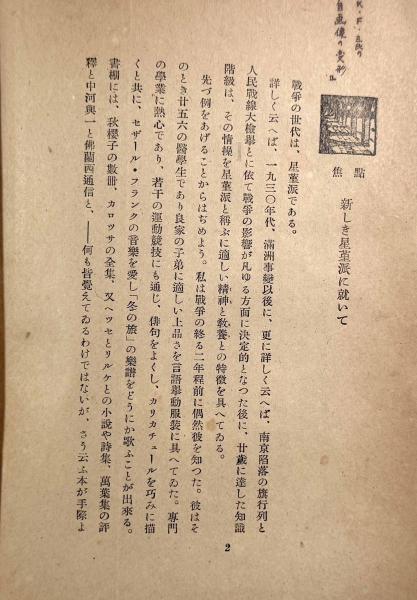 焦點
新しき星菫派に就いて
戰爭の世代は、星菫派である。
詳しく云へば、一九三〇年代、滿洲事變以後に、更に詳しく云へば、南京陷落の旗行列と
人民戰線大檢擧とに依て戰爭の影響が凡ゆる方面に決定的となつた後に、廿歲に達した知識
階級は、その情操を星菫派と稱ぶに適しい精神と敎養との特徵を具へてゐる。
先づ例をあげることからはぢめよう。私は戰爭の終る二年程前に偶然彼を知つた。彼はそ
のとき廿五六の醫學生であり良家の子弟に適しい上品さを言語擧動服裝に具へてゐた。專門
の學業に熱心であり、若干の運動競技にも通じ、俳句をよくし、カリカチュールを巧みに描
くと共に、セザール・フランクの音樂を愛し「冬の旅」の樂譜をどうにか歌ふことが出來る。
書棚には、秋櫻子の數册、カロッサの全集、又ヘッセとリルケとの小說や詩集、萬葉集の評
釋と中河與一と佛蘭西通信と、――何も皆覺えてゐるわけではないが、さう云ふ本が手際よ
2